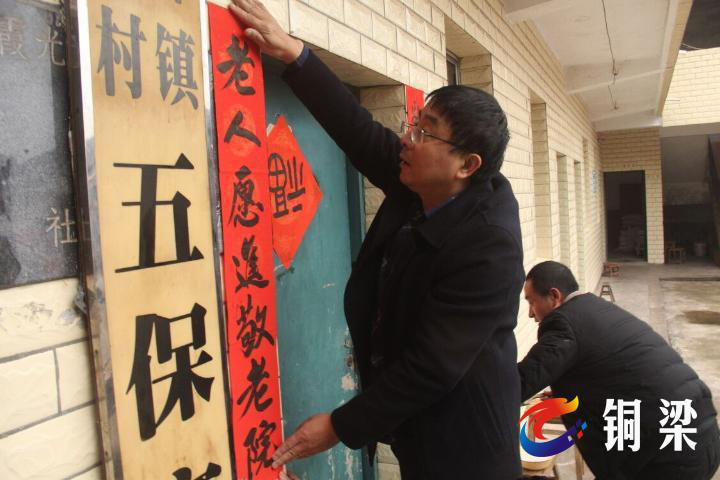 霞光
社
镇
村
五保老
老人愿進敬老院
福
铜梁